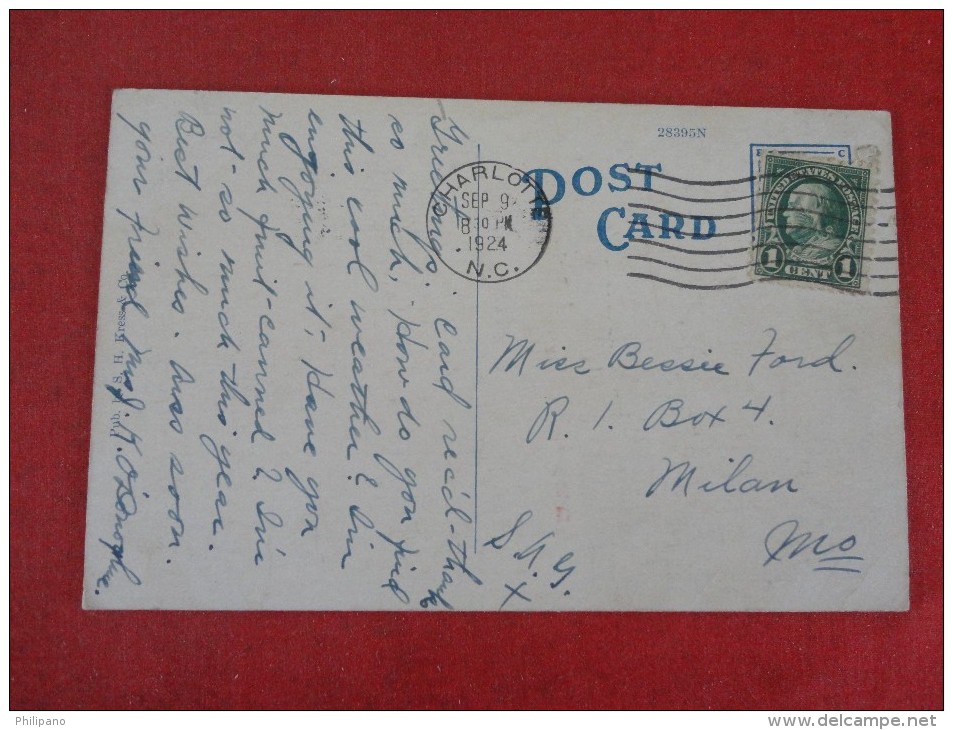 28395N
POST
CARD
CHARLOTTE
SEP 9
8 30 PM
1924
N.C.
UNITED STATES POSTAGE
1 CENT 1
Greetings. Card rec'd - thank
so much. How do you find
this cool weather? I'm
enjoying it. Have you
much fruit - canned? I've
not - so much this year.
Best wishes. Ans soon.
your friend Mrs J. K. O'Donoghue.
Pub. by S. H. Kress & Co.
Miss Bessie Ford.
R. 1. Box 4.
Milan
Mo
X
Philipano
www.delcampe.net